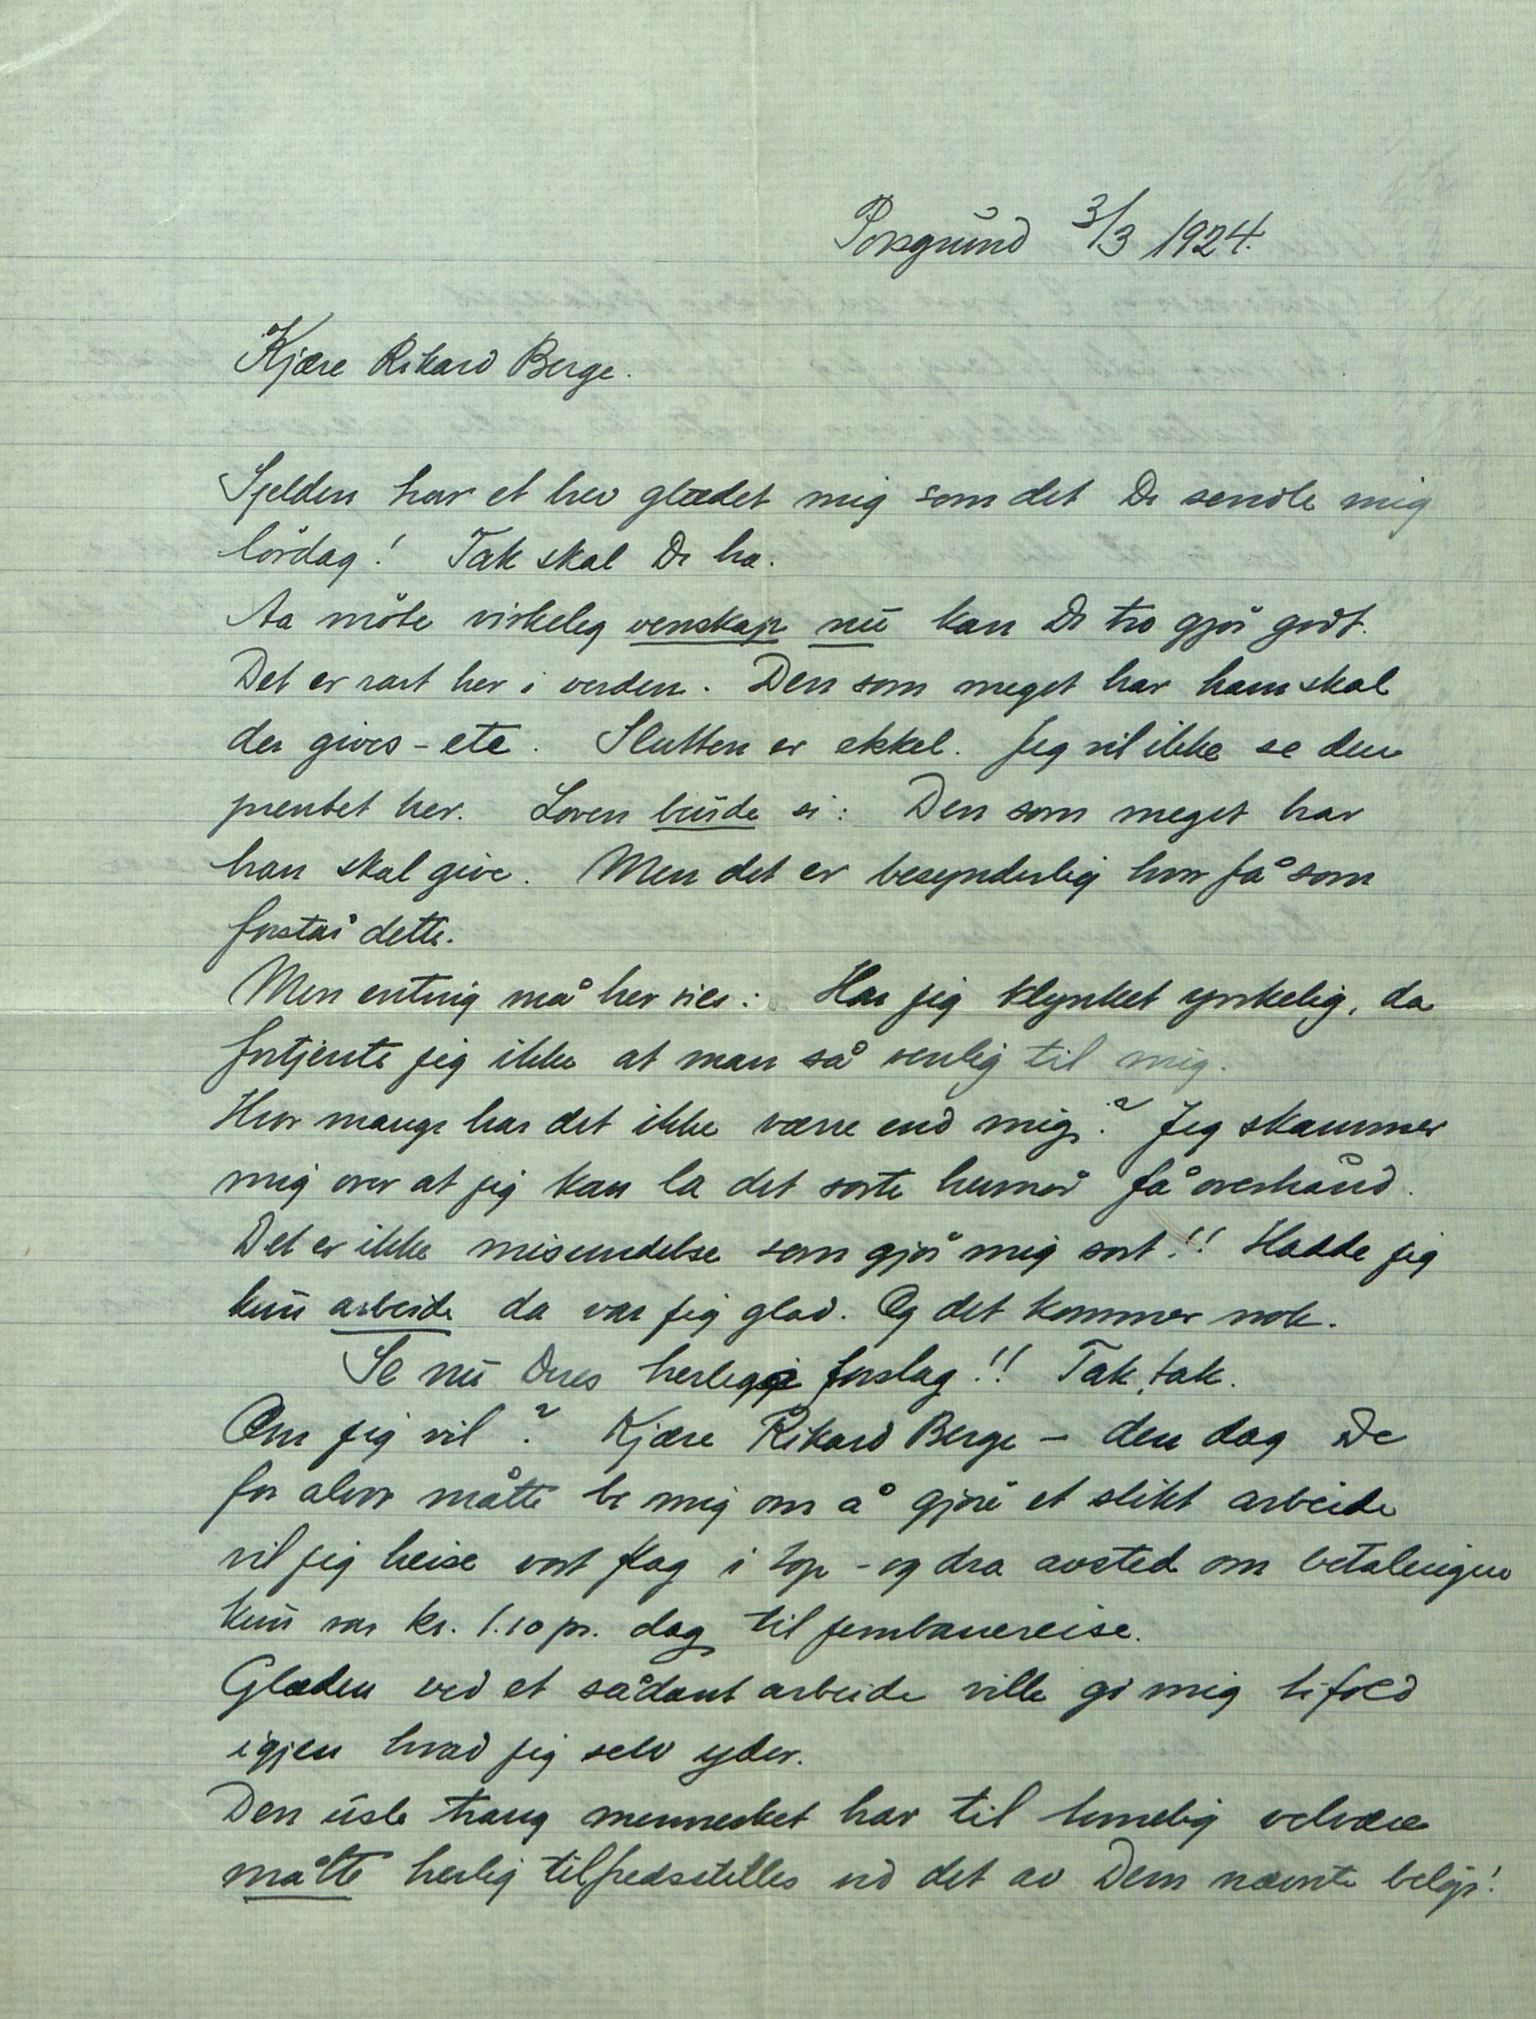 Porsgrund 3/3 1924.
Kjære Rikard Berge.
Sjelden har et brev glædet mig som det De sendte mig
lördag! Tak skal De ha.
Aa möte virkelig venskap nu kan De tro gjör godt.
Det er rart her i verden. Den som meget har ham skal
der gives - etc. Slutten er ekkel. Jeg vil ikke se den
prentet her. Loven burde si: Den som meget har
han skal give. Men det er besynderlig hvor få som
forstår dette.
Men enting må her sies: Har jeg klynket ynkelig, da
fortjente jeg ikke at man så venlig til mig.
Hvor mange har det ikke værre end mig? Jeg skammer
mig over at jeg kan la det sorte humör få overhånd.
Det er ikke misundelse som gjör mig sort!! Hadde jeg
kun arbeide da var jeg glad. Og det kommer nok.
Se nu Deres herlige forslag!! Tak, tak.
Om jeg vil? Kjære Rikard Berge - den dag De
for alvor måtte be mig om å gjöre et slikt arbeide
vil jeg heise vort flag i top - og dra avsted om betalingen
kun var kr. 1.10 pr. dag til jernbanereise.
Glæden ved et sådant arbeide ville gi mig tifold
igjen hvad jeg selv yder.
Den usle trang mennesket har til timelig velvære
måtte herlig tilfredsstilles ved det av Dem nævnte belöp!